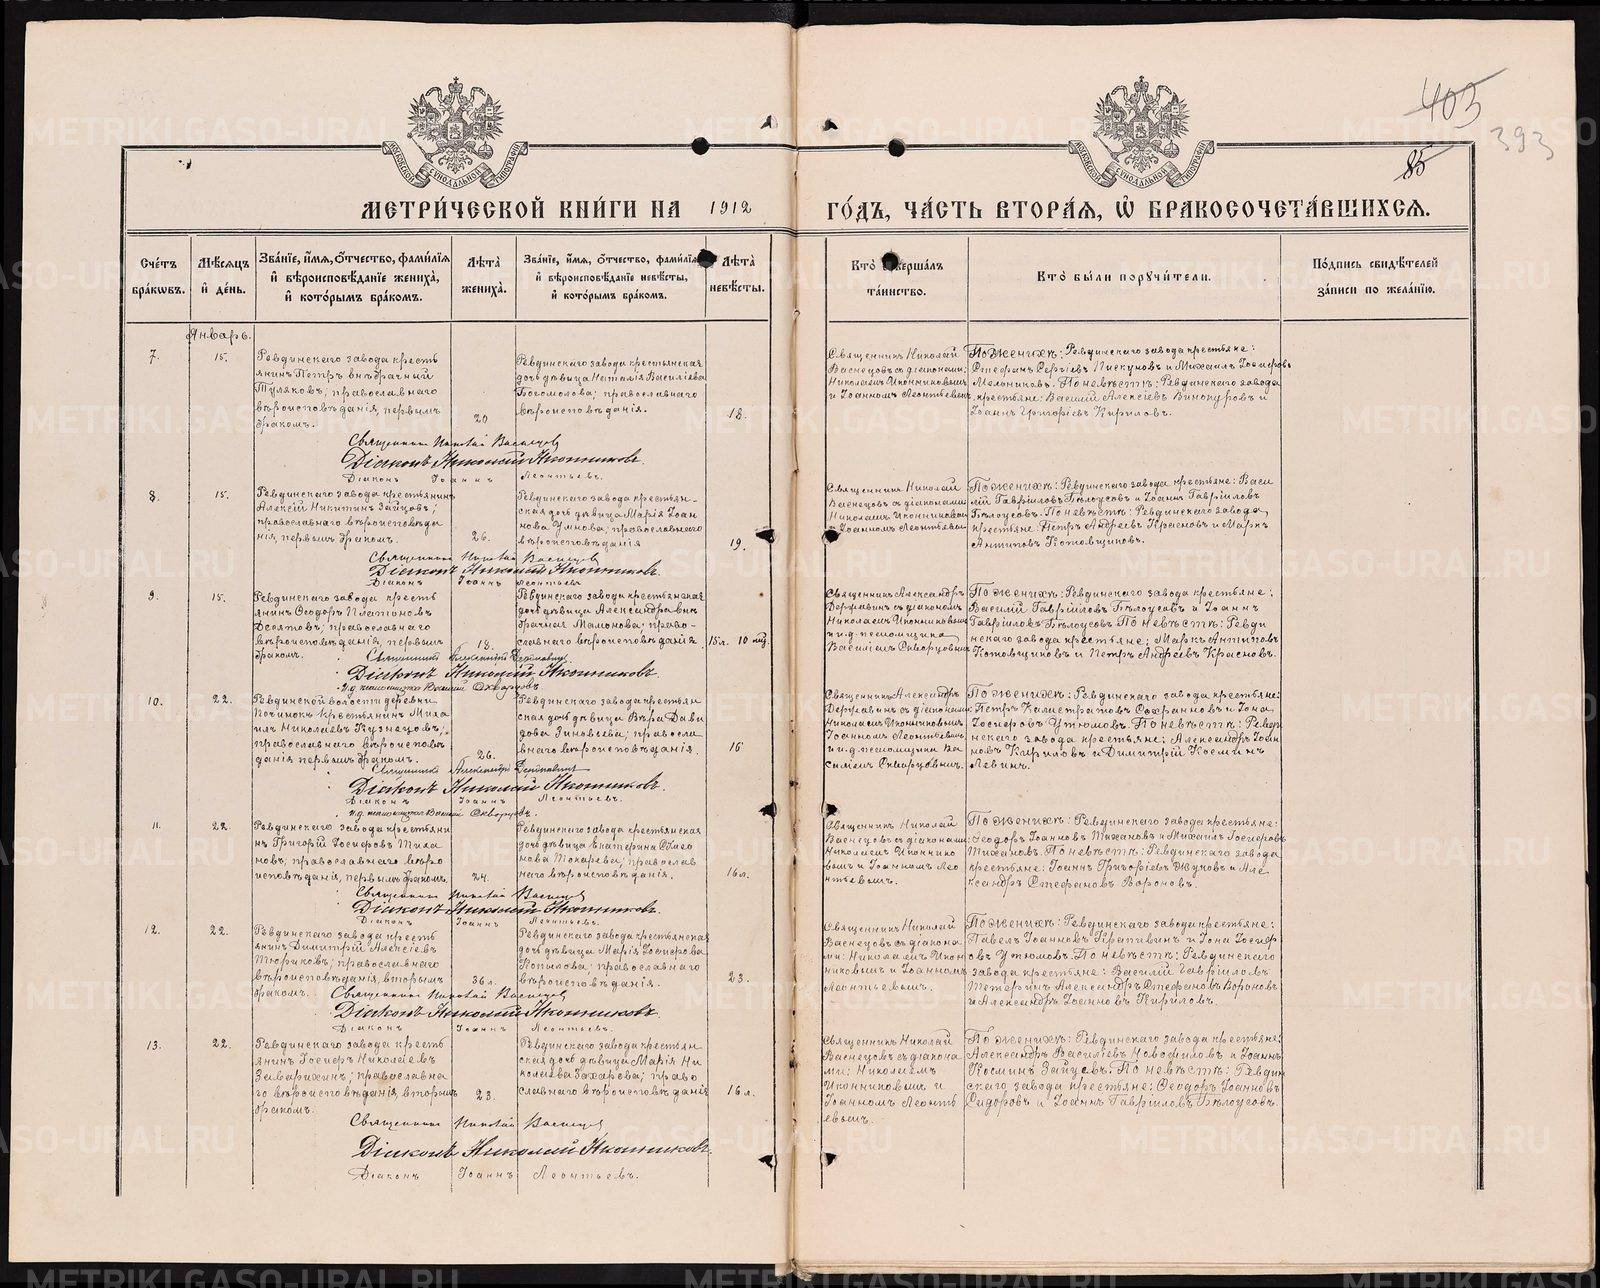 403
393
85
МЕТРИ́ЧЕСКОЙ КНИ́ГИ НА 1912
ГО́ДЪ, ЧА́СТЬ ВТОРА́Я, Ѡ҆ БРАКОСОЧЕТА́ВШИХСЯ.
Сче́тъ бра́кѡвъ.
Мѣ́сяцъ и҆ де́нь.
Зва́нїе, и҆́мя, ѻ҆́тчество, фами́лїя и҆ вѣроисповѣ́данїе жениха̀, и҆ кото́рымъ бра́комъ.
Лѣ́та жениха̀.
Зва́нїе, и҆́мя, ѻ҆́тчество, фами́лїя и҆ вѣроисповѣ́данїе невѣ́сты, и҆ кото́рымъ бра́комъ.
Лѣ́та невѣ́сты.
Кто̀ соверша́лъ та́инство.
Кто̀ бы́ли поручи́тели.
По́дпись свидѣ́телей за́писи по жела́нїю.
Январь.
7.
15.
Ревдинскаго завода кресть
янинъ Петръ внѣбрачный
Туляковъ; православнаго
вѣроисповѣданія, первымъ
бракомъ.
20
Ревдинскаго завода крестьянская
дочь дѣвица Наталія Василіева
Богомолова; православнаго
вѣроисповѣданія.
18.
Священникъ Николай
Васнецовъ съ діаконами:
Николаемъ Иконниковымъ
и Іоанномъ Леонтьевымъ
По женихѣ: Ревдинскаго завода крестьяне:
Стефанъ Сергіевъ Пискуновъ и Михаилъ Іосифовъ
Мельниковъ. По невѣстѣ: Ревдинскаго завода
крестьяне: Василій Алексіевъ Винокуровъ и
Іоаннъ Григоріевъ Кириловъ.
Священникъ Николай Васнецовъ
Діаконъ Николай Иконниковъ.
Діаконъ Іоаннъ Леонтьевъ.
8.
15.
Ревдинскаго завода крестьянинъ
Алексій Никитинъ Зайцовъ;
православнаго вѣроисповѣда
нія, первымъ бракомъ.
26.
Ревдинскаго завода крестьян-
ская дочь дѣвица Марія Іоан
нова Умнова; православнаго
вѣроисповѣданія
19.
Священникъ Николай
Васнецовъ съ діаконами
Николаемъ Иконниковымъ
и Іоанномъ Леонтьевымъ
По женихѣ: Ревдинскаго завода крестьяне: Васи
лій Гавріиловъ Бѣлоусовъ и Іоаннъ Гавріиловъ
Бѣлоусовъ. По невѣстѣ: Ревдинскаго завода
крестьяне: Петръ Андреевъ Красновъ и Маркъ
Антиповъ Котовщиковъ.
Священникъ Николай Васнецовъ
Діаконъ Николай Иконниковъ.
Діаконъ Іоаннъ Леонтьевъ
9.
15.
Ревдинскаго завода кресть
янинъ Ѳеодоръ Платоновъ
Десятовъ; православнаго
вѣроисповѣданія, первымъ
бракомъ.
18.
Ревдинскаго завода крестьянская
дочь дѣвица Александра вне
брачная Мамонова; право-
славнаго вѣроисповѣданія
15л. 10 мѣс.
Священникъ Александръ
Державинъ съ діакономъ
Николаемъ Иконниковымъ
и и.д. псаломщика
Василіемъ Скворцовымъ
По женихѣ: Ревдинскаго завода крестьяне:
Василій Гавріиловъ Бѣлоусовъ и Іоаннъ
Гавріиловъ Бѣлоусовъ. По невѣстѣ: Ревди
нскаго завода крестьяне; Маркъ Антиповъ
Котовщиковъ и Петръ Андреевъ Красновъ.
Священникъ Александръ Державинъ.
Діаконъ Николай Иконниковъ.
И.д. псаломщика Василій Скворцовъ
10.
22.
Ревдинской волости деревни
Починокъ крестьянинъ Миха
илъ Николаевъ Кузнецовъ;
православнаго вѣроисповѣ
данія первымъ бракомъ.
26.
Ревдинскаго завода крестьян
ская дочь дѣвица Вѣра Дави
дова Зиновьева; правосла
внаго вѣроисповѣданія.
16
Священникъ Александръ
Державинъ съ діаконами:
Николаемъ Иконниковымъ
Іоанномъ Леонтьевымъ
и и.д. псаломщика Ва
силіемъ Скворцовымъ.
По женихѣ: Ревдинскаго завода крестьяне:
Петръ Калистратовъ Сафоновъ и Іона
Іосифовъ Утюмовъ. По невѣстѣ: Ревди
нскаго завода крестьяне: Александръ Іоан
новъ Кириловъ и Димитрій Косминъ
Левинъ.
Священникъ Александръ Державинъ
Діаконъ Николай Иконниковъ.
Діаконъ Іоаннъ Леонтьевъ.
И.д. псаломщика Василій Скворцовъ.
11.
22.
Ревдинскаго завода крестьяни
нъ Григорій Іосифовъ Тиха
новъ; православнаго вѣро
исповѣданія, первымъ бракомъ.
24.
Ревдинскаго завода крестьянская
дочь дѣвица Екатерина Симео
нова Токарева; православ
наго вѣроисповѣданія.
16л.
Священникъ Николай
Васнецовъ съ діаконами:
Николаемъ Иконнико
вымъ и Іоанномъ Лео
нтьевымъ.
По женихѣ: Ревдинскаго завода крестьяне:
Ѳеодоръ Іоанновъ Тихановъ и Михаилъ Іосифовъ
Тихановъ. По невѣстѣ: Ревдинскаго завода
крестьяне: Іоаннъ Григоріевъ Жуковъ и Але
ксандръ Стефановъ Вороновъ.
Священникъ Николай Васнецовъ
Діаконъ Николай Иконниковъ.
Діаконъ Іоаннъ Леонтьевъ.
12.
22.
Ревдинскаго завода кресть
янинъ Димитрій Алексіевъ
Тюриковъ; православнаго
вѣроисповѣданія, вторымъ
бракомъ.
36л.
Ревдинскаго завода крестьянская
дочь дѣвица Марія Іосифова
Копылова; православнаго
вѣроисповѣданія.
23.
Священникъ Николай
Васнецовъ съ діакона
ми: Николаемъ Икон
никовымъ и Іоанномъ
Леонтьевымъ.
По женихѣ: Ревдинскаго завода крестьяне:
Павелъ Іоанновъ Крапивинъ и Іона Іосиф
овъ Утюмовъ. По невѣстѣ: Ревдинскаго
завода крестьяне: Василій Гавріиловъ
Шетеринъ Александръ Стефановъ Вороновъ
и Александръ Іоанновъ Кириловъ.
Священникъ Николай Васнецовъ
Діаконъ Николай Иконниковъ.
Діаконъ Іоаннъ Леонтьевъ.
13.
22.
Ревдинскаго завода кресть
янинъ Іосифъ Николаевъ
Заварихинъ; православна
го вѣроисповѣданія, вторымъ
бракомъ.
23.
Ревдинскаго завода крестьян
ская дочь дѣвица Марія Ни
колаева Захарова; право
славнаго вѣроисповѣданія
16л.
Священникъ Николай
Васнецовъ съ діакона
ми: Николаемъ
Иконниковымъ и
Іоанномъ Леонть
евымъ.
По женихѣ: Ревдинскаго завода крестьяне:
Александръ Василіевъ Новофиловъ и Іоаннъ
Косминъ Зайцевъ. По невѣстѣ: Ревдин
скаго завода крестьяне: Ѳеодоръ Іоанновъ
Сидоровъ и Іоаннъ Гавріиловъ Бѣлоусовъ.
Священникъ Николай Васнецовъ
Діаконъ Николай Иконниковъ.
Діаконъ Іоаннъ Леонтьевъ.
METRIKI.GASO-URAL.RU